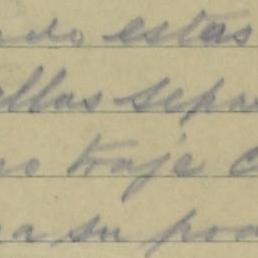 ado estas
ellas sepa
no traje c
a su pod